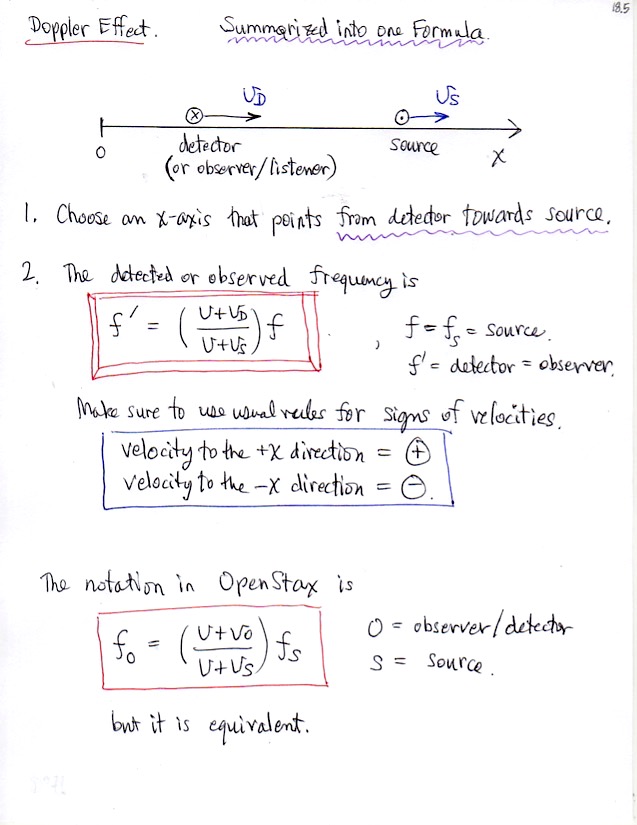 18.5
Doppler Effect. Summarized into one Formula.
υD υS
0 detector source x
(or observer/listener)
1. Choose an x-axis that points from detector towards source.
2. The detected or observed frequency is
f′ = (υ+υD / υ+υS) f , f = fs = source.
f′ = detector = observer.
Make sure to use usual rules for signs of velocities.
velocity to the +x direction = ⊕
velocity to the -x direction = ⊖.
The notation in OpenStax is
fo = (υ+υo / υ+υs) fs O = observer/detector
S = source.
but it is equivalent.